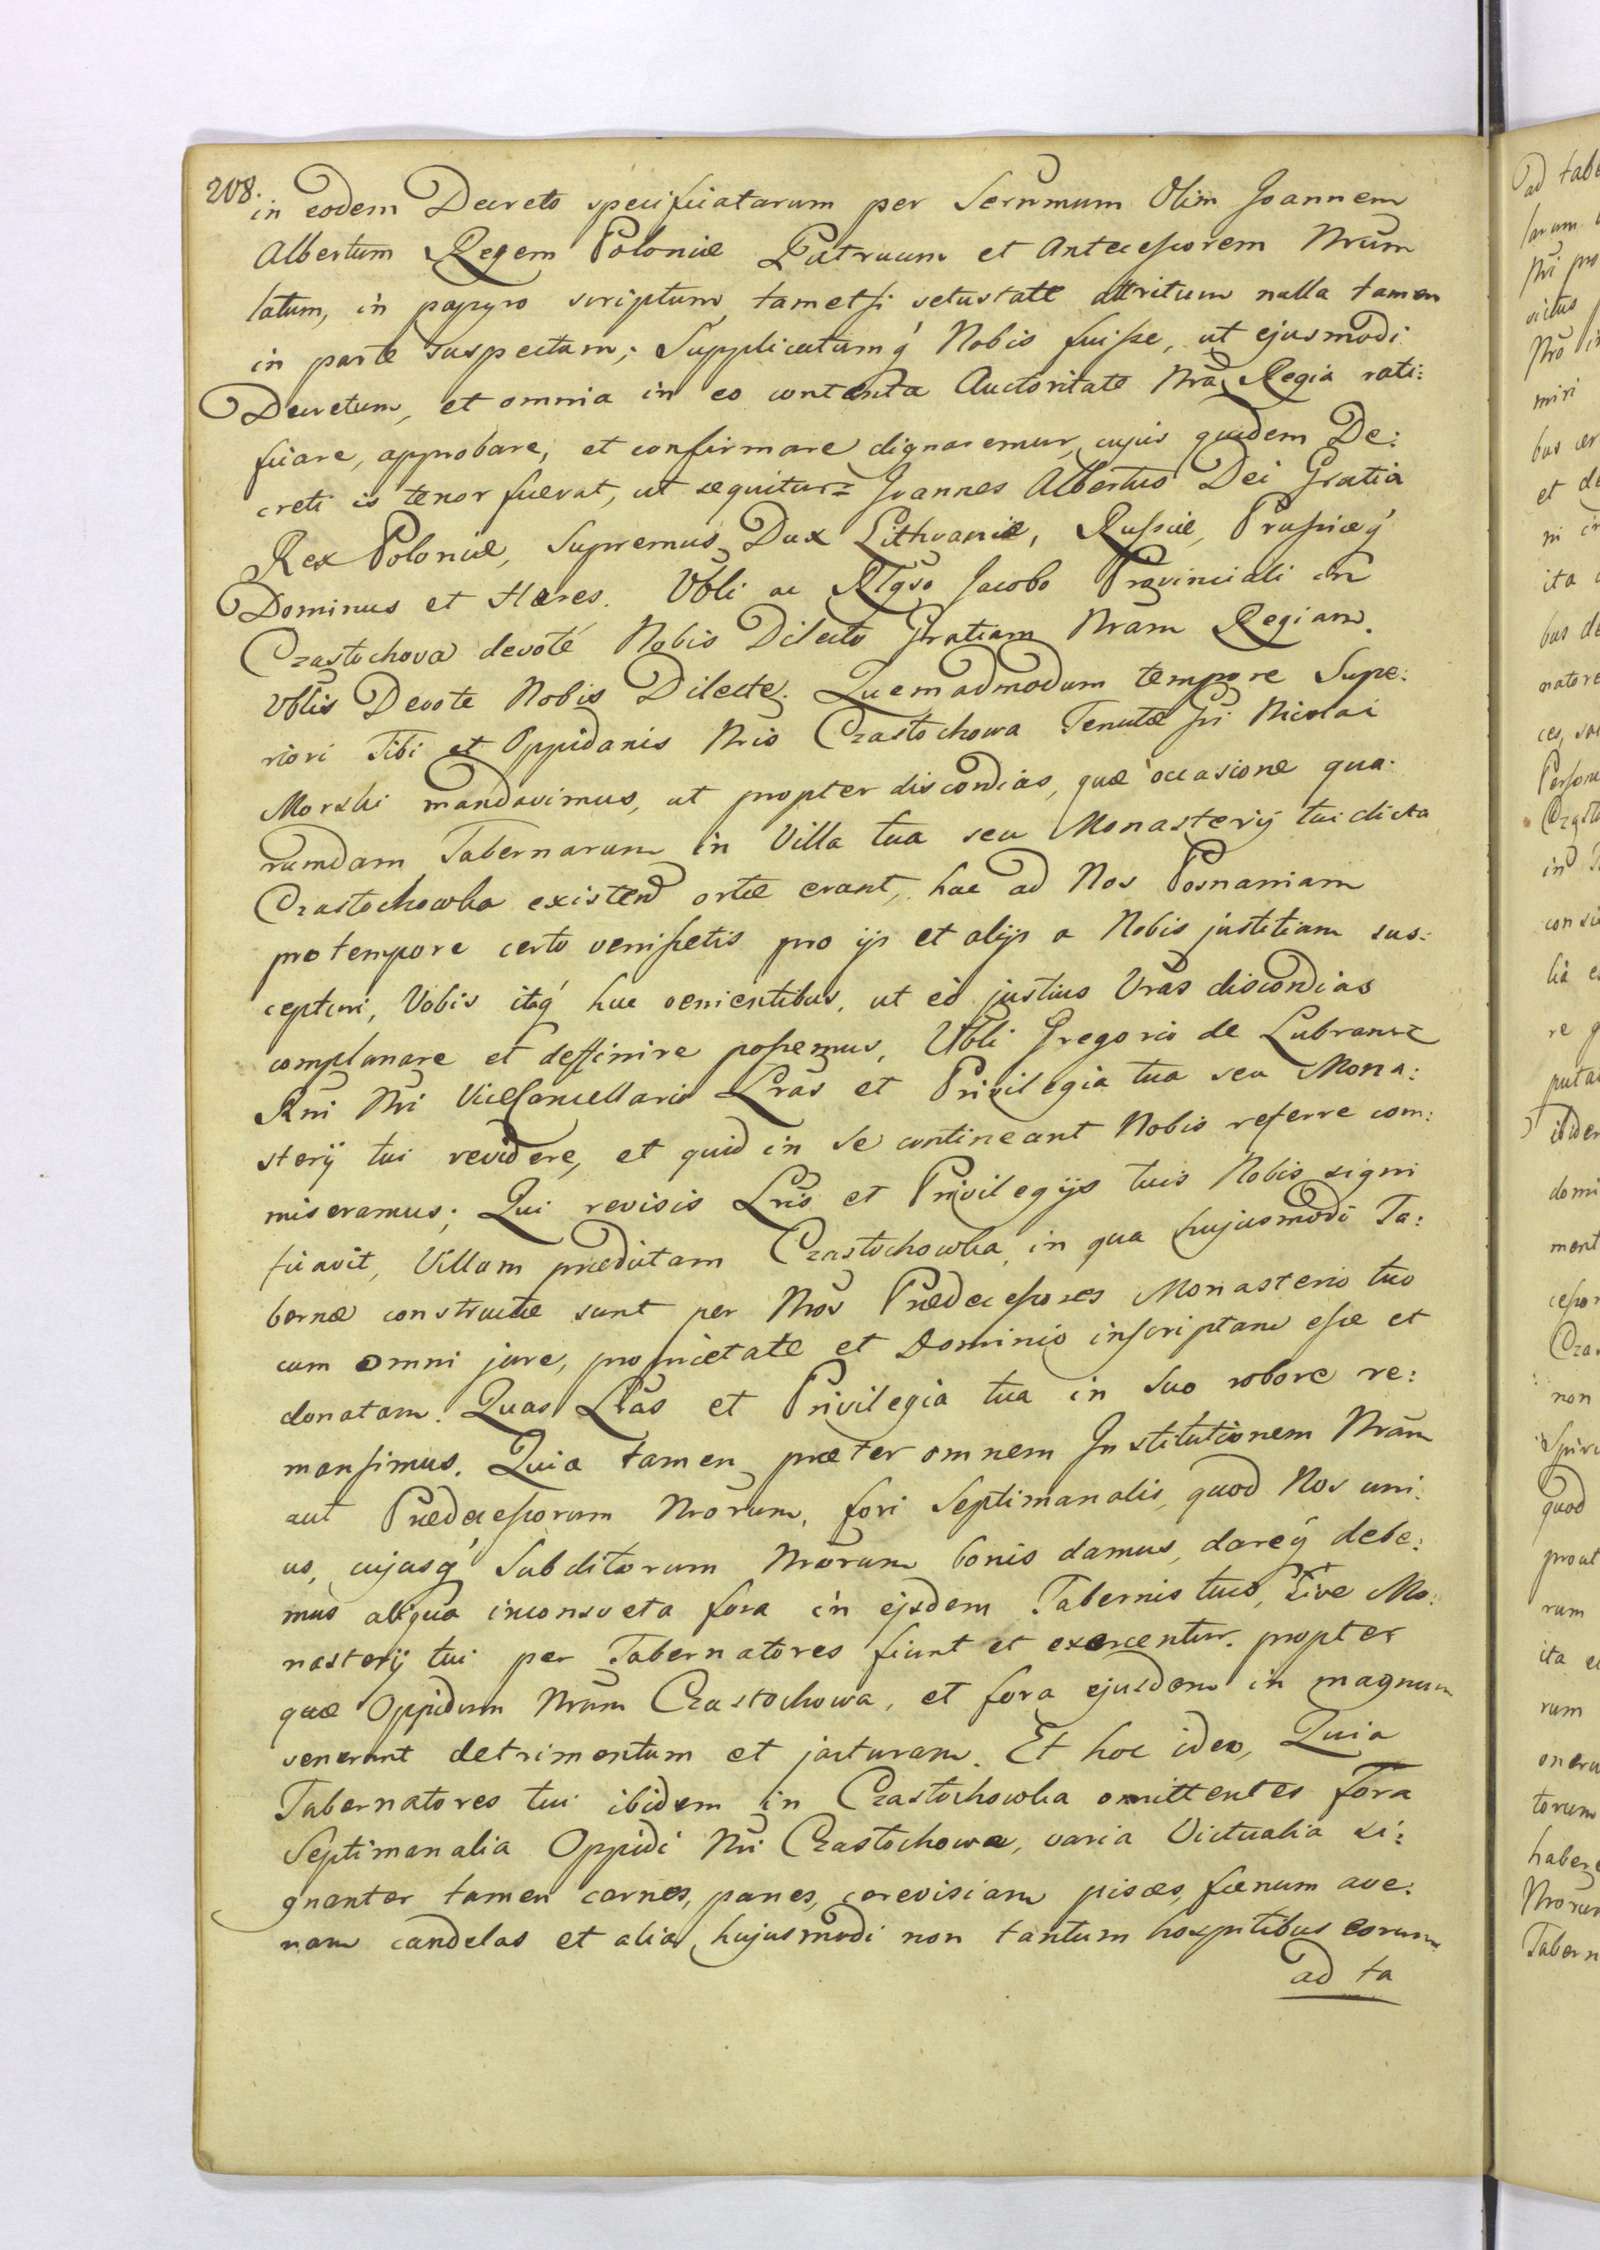 208.
in eodem Decreto specificatarum per Sernmum Olim Joannem
Albertum Regem Poloniæ Patruum et Antecessorem Nrum
latum, in papyro scriptum, tametsi vetustate attritum nulla tamen
in parte suspectum; Supplicatumq́ Nobis fuisse, ut ejusmodi
Decretum, et omnia in eo contenta Auctoritate Nra Regia rati:
ficare, approbare, et confirmare dignaremur, cujus quidem De:
creti is tenor fuerat, ut sequitur= Joannes Albertus Dei Gratia
Rex Poloniæ, Supremus Dux Lithvaniæ, Russiæ, Prussiæq́
Dominus et Hæres. Vbli ac Rlgso Jacobo Provinciali in
Czastochova devoté Nobis Dilecto Gratiam Nram Regiam.
Vblis Devote Nobis Dilecte. Quemadmodum tempore Supe:
riori Tibi et Oppidanis Nris Czastochowa Tenutæ Gsi Nicolai
Morski mandavimus, ut propter discordias, quæ occasione qua:
rumdam Tabernarum in Villa tua seu Monasterij tui dicta
Czastochowka existend ortæ erant, huc ad Nos Posnaniam
pro tempore certo venissetis pro ijs et alijs a Nobis justitiam sus:
cepturi, Vobis itaq́ huc venientibus, ut eò justius Vras discordias
complanare et deffinire possemus, Vbli Gregorio de Lubrancz
Rni Nri ViceCancellario Lras et Privilegia tua seu Mona:
sterij tui revidere, et quid in se contineant Nobis referre com:
miseramus; Qui revisis Lris et Privilegijs tuis Nobis signi
ficavit, Villam prædictam Czastochowka, in qua hujusmodi Ta:
bernæ constructæ sunt per Nros Prædecessores Monasterio tuo
cum omni jure, proprietate et Dominio inscriptam esse et
donatam. Quas Lras et Privilegia tua in suo robore re:
mansimus. Quia tamen præter omnem Institutionem Nram
aut Prædecessorum Nrorum, fori Septimanalis, quod Nos uni:
us, cujusq́ Subditorum Nrorum bonis damus, dareq́ debe:
mus aliqua inconsveta fora in ejsdem Tabernis tuis, sive Mo:
nasterij tui per Tabernatores fiunt et exercentur. propter
quæ Oppidum Nrum Czastochowa, et fora ejusdem in magnum
venerunt detrimentum et jacturam. Et hoc ideo, Quia
Tabernatores tui ibidem in Czastochowka omittentes fora
Septimanalia Oppidi Nri Czastochowa, varia Victualia si:
gnanter tamen carnes, panes, cerevisiam pisces, fænum ave:
nam candelas et alia hujusmodi non tantum hospitibus eorum
ad ta